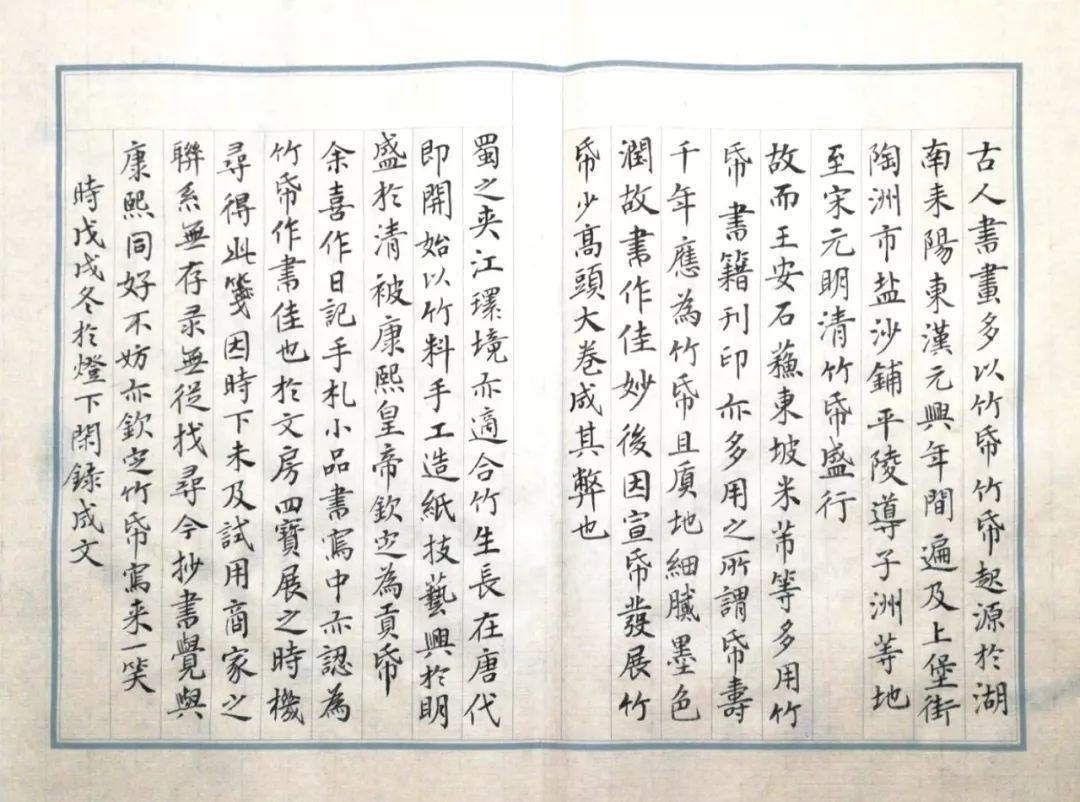 古人書畫多以竹帋竹帋起源於湖
南耒陽東漢元興年間遍及上堡街
陶洲市盐沙鋪平陵導子洲等地
至宋元明清竹帋盛行
故而王安石蘓東坡米芾等多用竹
帋書籍刊印亦多用之所謂帋壽
千年應為竹帋且質地細膩墨色
潤故書作佳妙後因宣帋發展竹
帋少高頭大卷成其弊也
蜀之夾江環境亦適合竹生長在唐代
即開始以竹料手工造紙技藝興於明
盛於清被康熙皇帝欽定為貢帋
余喜作日記手札小品書寫中亦認為
竹帋作書佳也於文房四寶展之時機
尋得此箋因時下未及試用商家之
聯系無存录無從找尋今抄書覺與
康熙同好不妨亦欽定竹帋寫来一笑
時戊戌冬於燈下閑録成文